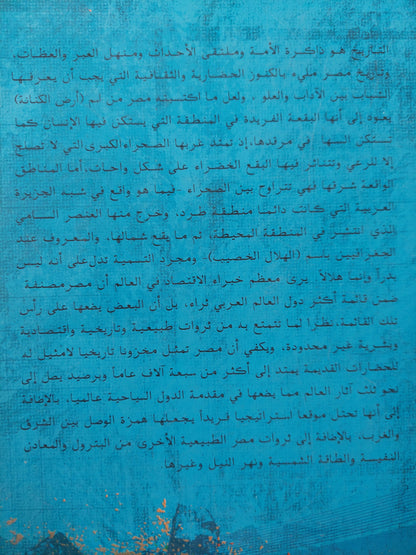 التاريخ هو ذاكرة الأمة وملتقى الأحداث ومنهل العبر والعظات،
وتاريخ مصر مليء بالكنوز الحضارية والثقافية التي يجب أن يعرفها
الشباب بين الآداب والعلو ، ولعل ما اكتسبته مصر من لم (أرض الكنانة)
يعود إلى أنها البقعة الفريدة في المنطقة التي يستكن فيها الإنسان كما
تستكن السها في مرقدها، إذ تمتد غربها الصحراء الكبرى التي لا تصلح
إلا للرعي وتتناثر فيها البقع الخضراء على شكل واحات، أما المناطق
الواقعة شرقها فهي تتراوح بين الصحراء -فيما هو واقع في شبه الجزيرة
العربية التي كانت دائما منطقة طرد، وخرج منها العنصر السامي
الذي انتشر في المنطقة المحيطة، ثم ما يقع شمالها، والمعروف عند
الجغرافيين باسم (الهلال الخصيب)- ومجرد التسمية تدل على أنه ليس
بدراً وإنما هلالاً يرى معظم خبراء الاقتصاد في العالم أن مصر مصنفة
ضمن قائمة أكثر دول العالم العربي ثراء، بل أن البعض يضعها على رأس
تلك القائمة، نظرا لما تتمتع به من ثروات طبيعية وتاريخية واقتصادية
وبشرية غير محدودة، ويكفي أن مصر تمثل مخزونا تاريخيا لا مثيل له
للحضارات القديمة يمتد إلى أكثر من سبعة آلاف عاماً وبرصيد يصل إلى
نحو ثلث آثار العالم مما يضعها في مقدمة الدول السياحية عالميا، بالإضافة
إلى أنها تحتل موقعا استراتيجيا فريداً يجعلها همزة الوصل بين الشرق
والغرب، بالإضافة إلى ثروات مصر الطبيعية الأخرى من البترول والمعادن
النفيسة والطاقة الشمسية ونهر النيل وغيرها